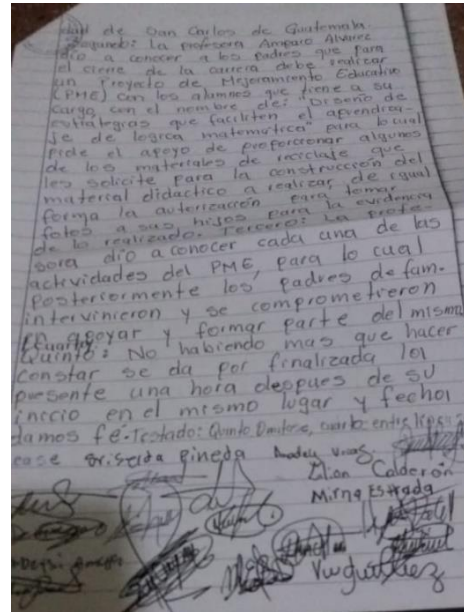 dad de San Carlos de Guatemala.
Segundo: La profesora Amparo Alvarez
dio a conocer a los padres que para
el cierre de la carrera debe realizar
un Proyecto de Mejoramiento Educativo
(PME) con los alumnos que tiene a su
cargo, con el nombre de: "Diseño de
estrategias que faciliten el aprendiza-
je de logica matematica" para lo cual
pide el apoyo de proporcionar algunos
de los materiales de reciclaje que
les solicite para la construcción del
material didactico a realizar de igual
forma la autorización para tomar
fotos a sus hijos para la evidencia
de lo realizado. Tercero: La profe-
sora dio a conocer cada una de las
actividades del PME, para lo cual
posteriormente los padres de fam.
intervinieron y se comprometieron
apoyar y formar parte del mismo
Cuarto
Quinto: No habiendo mas que hacer
constar se da por finalizada la
presente una hora despues de su
inicio en el mismo lugar y fecha
damos fé. Testado: Quinto Omitase, cuarto: entre lineas
ease Griselda Pineda
Elion Calderón
Mirna Estrada